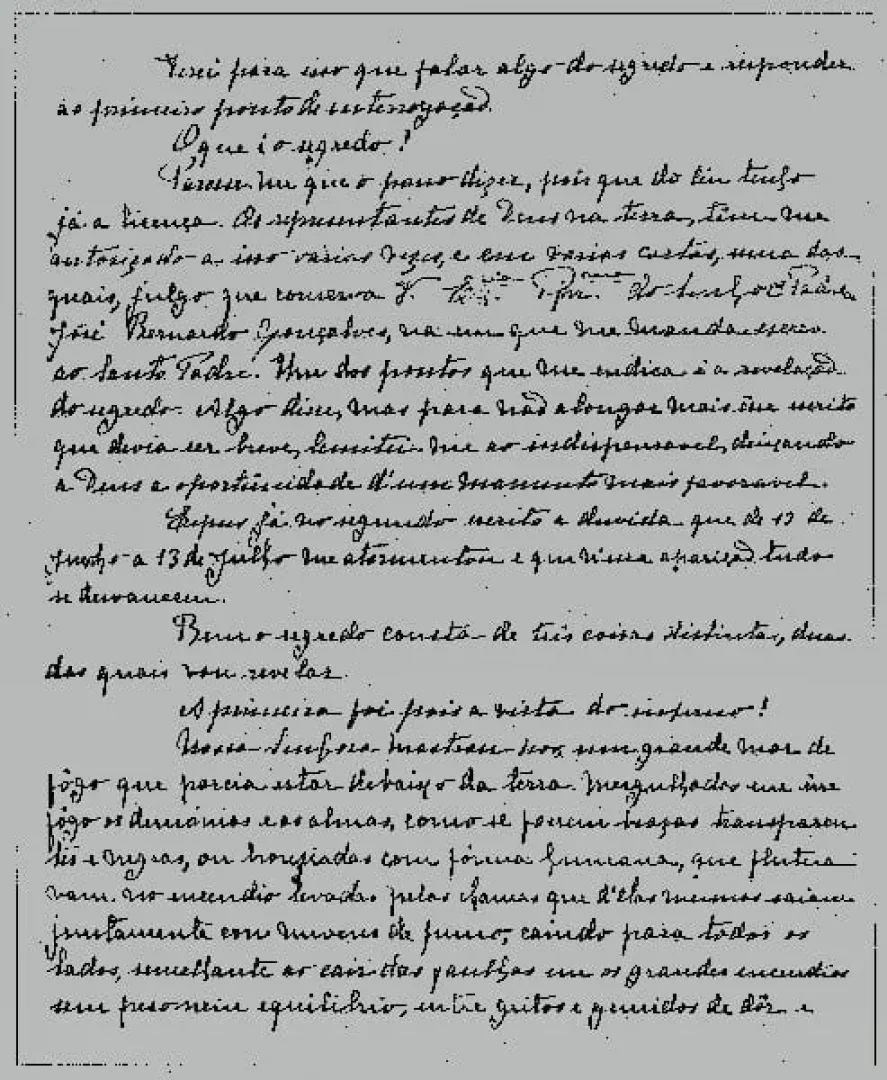 Terei para isso que falar algo do segredo e responder
ao primeiro ponto de interrogação.
O que é o segredo?
Parece-me que o posso dizer, pois que do Céu tenho
já a licença. Os representantes de Deus na terra, têm-me
autorizado a isso varias vezes, e em varias cartas, uma das
quais, julgo que conserva V. Ex.cia Rev.ma do Senhor Padre
José Bernardo Gonçalves, na em que me manda escrever
ao Santo Padre. Um dos pontos que me indica é a revelação
do segredo. Algo disse, mas para não alongar mais esse escrito
que devia ser breve, limitei-me ao indispensavel, deixando
a Deus a oportunidade d'um momento mais favoravel.
Expus já no segundo escrito a duvida que de 13 de
Junho a 13 de Julho me atormentou e que n'essa aparição tudo
se desvaneceu.
Bem o segredo consta de três coisas distintas, duas
das quais vou revelar.
A primeira foi pois a vista do inferno!
Nossa Senhora mostrou-nos um grande mar de
fôgo que parcia estar debaixo da terra. Mergulhados em êsse
fôgo os demónios e as almas, como se fossem brazas transparen
tes e negras, ou bronziadas com fórma humana, que flutua
vam no incendio levadas pelas chamas que d'elas mesmas saiam
juntamente com nuvens de fumo, caindo para todos os
lados, semelhante ao cair das faulhas em os grandes incendios
sem peso nem equilibrio, entre gritos e gemidos de dôr e